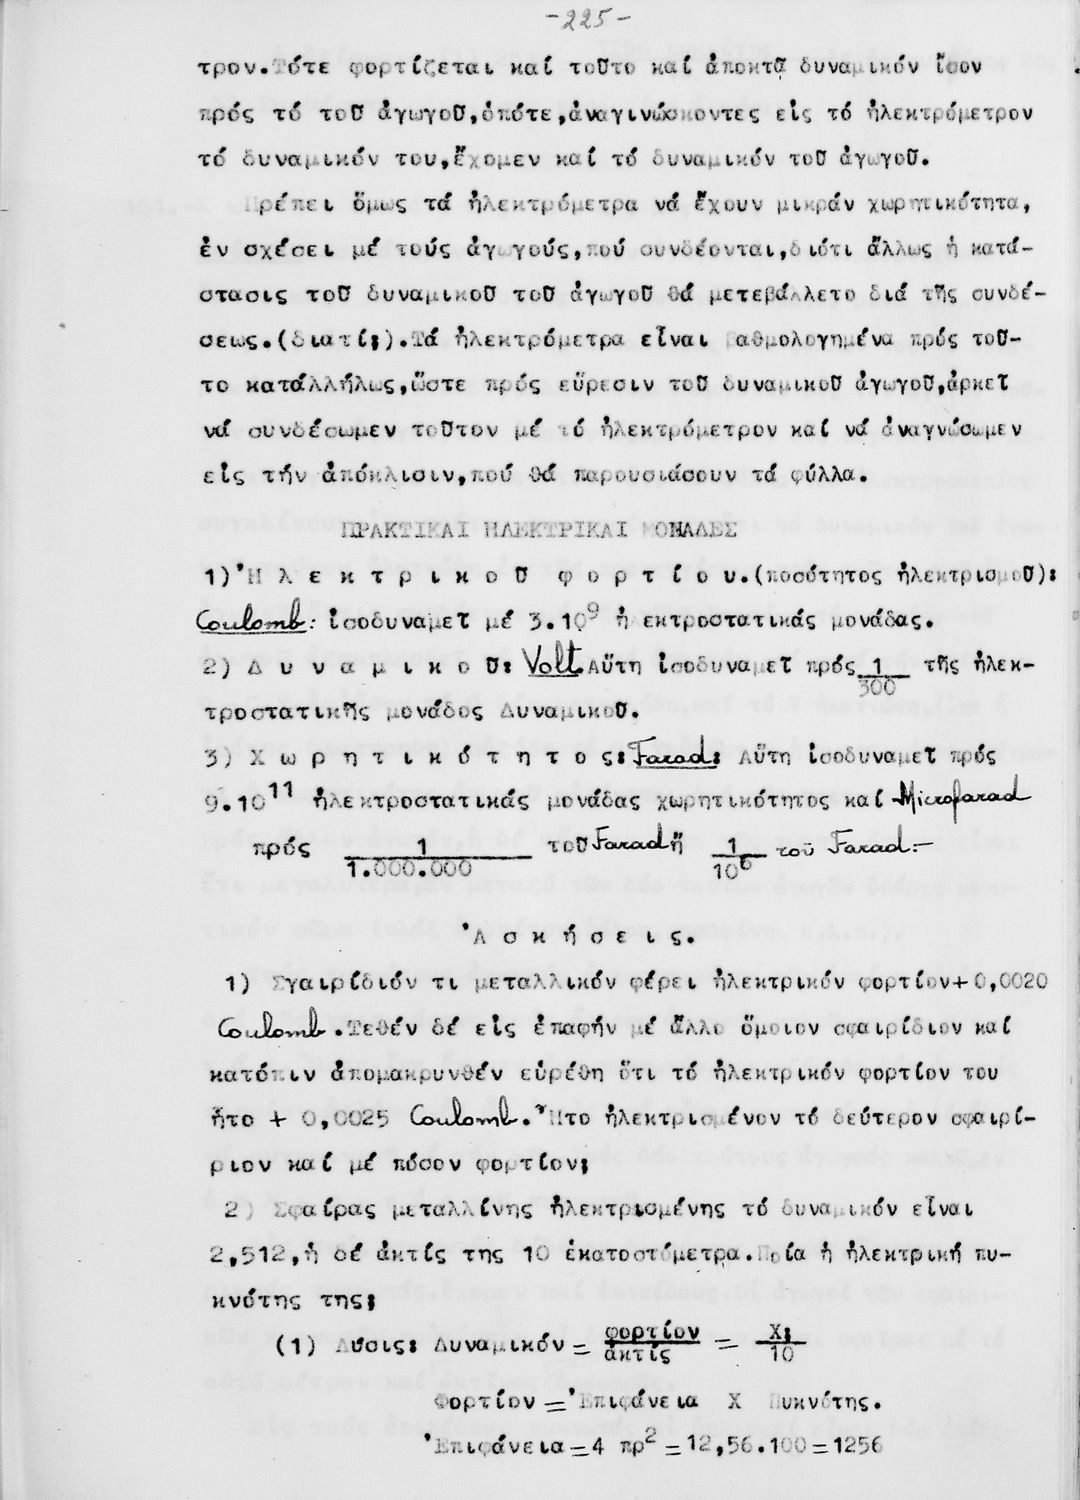 -225-
τρον.Τότε φορτίζεται καί τοῦτο καί ἀποκτᾷ δυναμικόν ἴσον
πρός τό τοῦ ἀγωγοῦ,ὁπότε,ἀναγινώσκοντες εἰς τό ἠλεκτρόμετρον
τό δυναμικόν του,ἔχομεν καί τό δυναμικόν τοῦ ἀγωγοῦ.
Πρέπει ὅμως τά ἠλεκτρόμετρα νά ἔχουν μικράν χωρητικότητα,
ἐν σχέσει μέ τούς ἀγωγούς,πού συνδέονται,διότι ἄλλως ἡ κατά-
στασις τοῦ δυναμικοῦ τοῦ ἀγωγοῦ θά μετεβάλλετο διά τῆς συνδέ-
σεως.(διατί;).Τά ἠλεκτρόμετρα εἶναι βαθμολογημένα πρός τοῦ-
το κατάλλήλως,ὥστε πρός εὕρεσιν τοῦ δυναμικοῦ ἀγωγοῦ,ἀρκεῖ
νά συνδέσωμεν τοῦτον μέ τό ἠλεκτρόμετρον καί νά ἀναγνώσωμεν
εἰς τήν ἀπόκλισιν,πού θά παρουσιάσουν τά φύλλα.
ΠΡΑΚΤΙΚΑΙ ΗΛΕΚΤΡΙΚΑΙ ΜΟΝΑΔΕΣ
1)Ἠ λ ε κ τ ρ ι κ ο ῦ φ ο ρ τ ί ο υ.(ποσότητος ἠλεκτρισμοῦ):
Coulomb: ἰσοδυναμεῖ μέ 3.10⁹ ἠ εκτροστατικάς μονάδας.
2) Δ υ ν α μ ι κ ο ῦ: Volt.Αὕτη ἰσοδυναμεῖ πρός 1/300 τῆς ἠλεκ-
τροστατικῆς μονάδος Δυναμικοῦ.
3) Χ ω ρ η τ ι κ ό τ η τ ο ς:Farad: Αὕτη ἰσοδυναμεῖ πρός
9.10¹¹ ἠλεκτροστατικάς μονάδας χωρητικότητος καί Microfarad
πρός 1/1.000.000 τοῦ Farad ἤ 1/10⁶ τοῦ Farad.-
Ἀ σ κ ή σ ε ι ς.
1) Σγαιρίδιόν τι μεταλλικόν φέρει ἠλεκτρικόν φορτίον+0,0020
Coulomb.Τεθέν δέ εἰς ἐπαφήν μέ ἄλλο ὅμοιον σφαιρίδιον καί
κατόπιν ἀπομακρυνθέν εὑρέθη ὅτι τό ἠλεκτρικόν φορτίον του
ἦτο + 0,0025 Coulomb.Ἦτο ἠλεκτρισμένον τό δεύτερον σφαιρί-
ριον καί μέ πόσον φορτίον;
2) Σφαίρας μεταλλίνης ἠλεκτρισμένης τό δυναμικόν εἶναι
2,512,ἡ δέ ἀκτίς της 10 ἑκατοστόμετρα.Ποία ἡ ἠλεκτρική πυ-
κνότης της;
(1) Λύσις: Δυναμικόν = φορτίον/ἀκτίς = Χ;/10
Φορτίον = Ἐπιφάνεια Χ Πυκνότης.
Ἐπιφάνεια = 4 πρ² = 12,56.100 = 1256